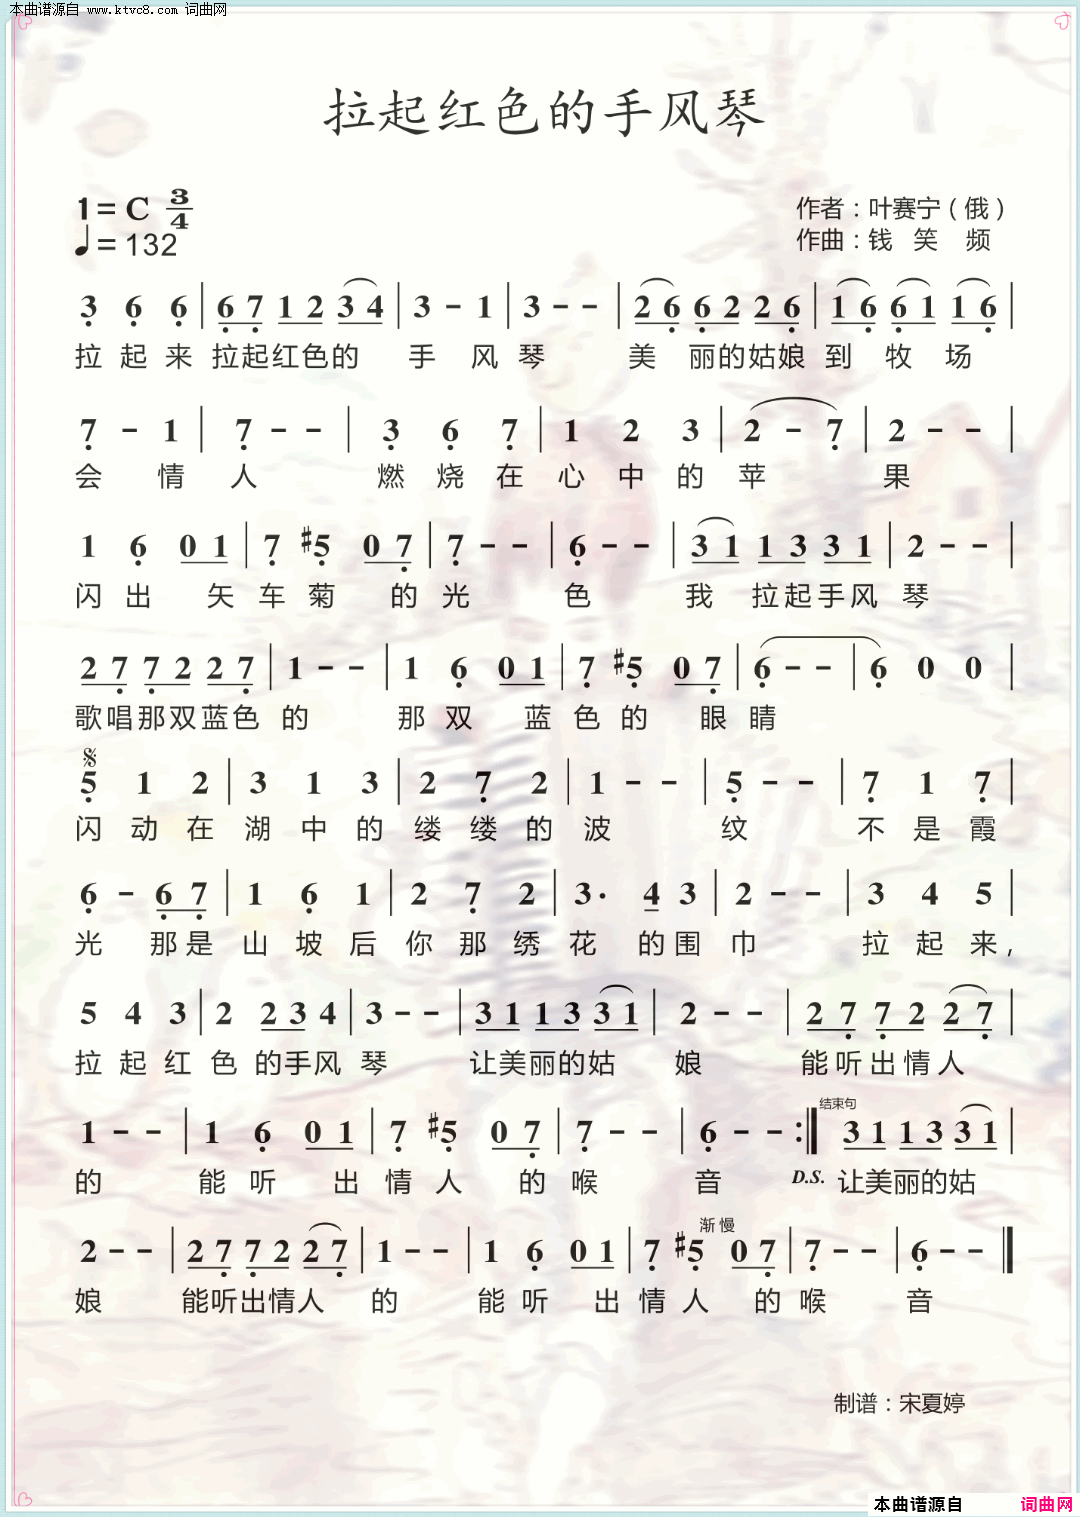 本曲谱源自 www.ktvc8.com 词曲网
拉起红色的手风琴
1=C 3/4
♩=132
作者：叶赛宁（俄）
作曲：钱 笑 频
3 6 6 | 6 7 1 2 3 4 | 3 - 1 | 3 - - | 2 6 6 2 2 6 | 1 6 6 1 1 6 |
拉 起 来 拉起红色的 手 风 琴 美 丽的姑娘 到 牧 场
7 - 1 | 7 - - | 3 6 7 | 1 2 3 | 2 - 7 | 2 - - |
会 情 人 燃 烧 在 心 中 的 苹 果
1 6 0 1 | 7 #5 0 7 | 7 - - | 6 - - | 3 1 1 3 3 1 | 2 - - |
闪 出 矢 车 菊 的 光 色 我 拉起手风 琴
2 7 7 2 2 7 | 1 - - | 1 6 0 1 | 7 #5 0 7 | 6 - - | 6 0 0 |
歌唱那双蓝色 的 那 双 蓝 色 的 眼 睛
𝄋
5 1 2 | 3 1 3 | 2 7 2 | 1 - - | 5 - - | 7 1 7 |
闪 动 在 湖 中 的 缕 缕 的 波 纹 不 是 霞
6 - 6 7 | 1 6 1 | 2 7 2 | 3· 4 3 | 2 - - | 3 4 5 |
光 那 是 山 坡 后 你 那 绣 花 的 围 巾 拉 起 来，
5 4 3 | 2 2 3 4 | 3 - - | 3 1 1 3 3 1 | 2 - - | 2 7 7 2 2 7 |
拉 起 红 色 的手风 琴 让美丽的姑 娘 能听出情人
结束句
1 - - | 1 6 0 1 | 7 #5 0 7 | 7 - - | 6 - - :‖ 3 1 1 3 3 1 |
的 能 听 出 情 人 的 喉 音 D.S. 让美丽的姑
渐 慢
2 - - | 2 7 7 2 2 7 | 1 - - | 1 6 0 1 | 7 #5 0 7 | 7 - - | 6 - - ‖
娘 能听出情人 的 能 听 出 情 人 的 喉 音
制谱：宋夏婷
本曲谱源自 词曲网